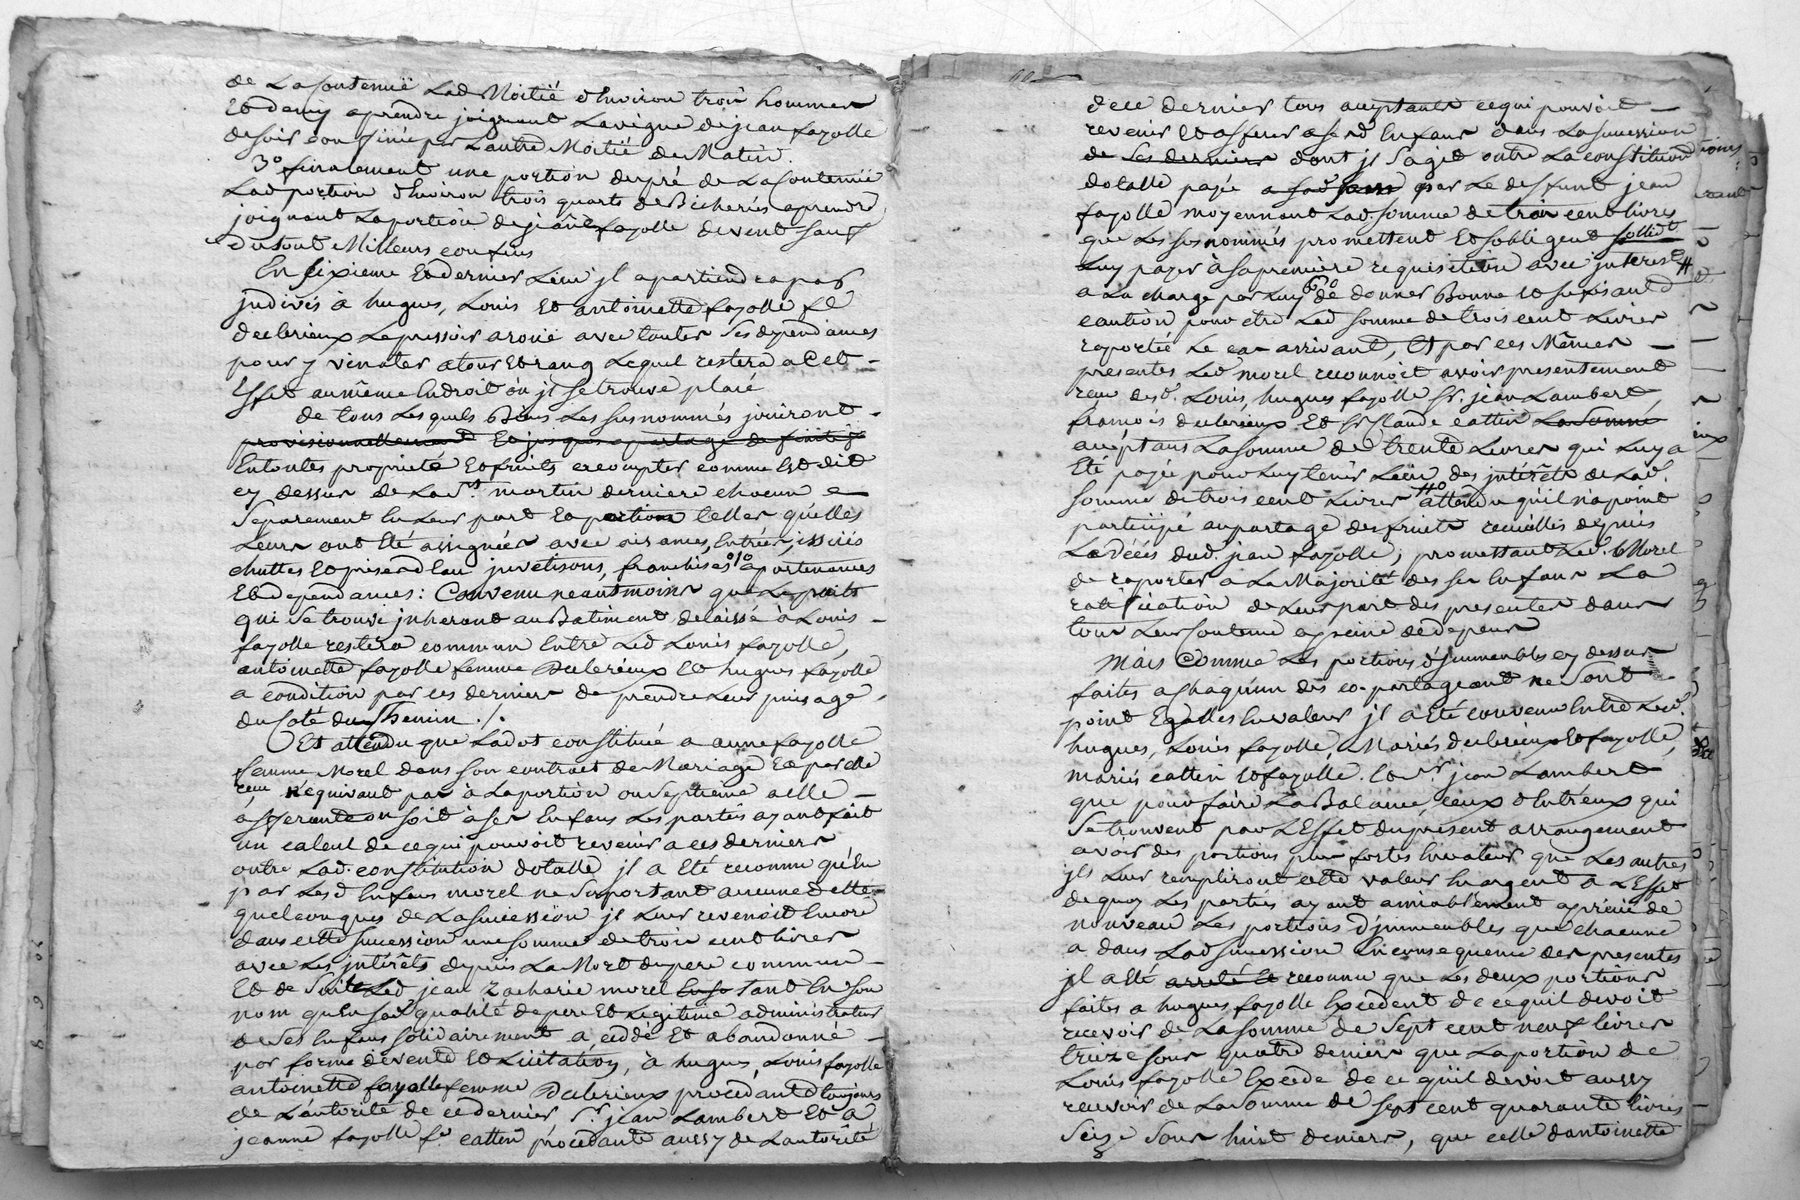 de La Contenüe Lad. Moitié d'Environ trois hommées
Et demy aprendre joignant Lavigne de jean fayolle
de soir confinée par Lautre Moitié de Matin.
3.º finalement une portion de pré de La Contenüe
Lad. portion d'Environ trois quarts de Bicherées aprendre
joignant La portion de jeanne fayolle de vent sauf
du tout Milleurs confins
En sixieme Et dernier Lieu jl apartiendra par
jndivis à hugues, Louis Et antoinette fayolle fe
declerieux Le pressoir a roüe avec toutes Ses dependances
pour y venir ater atour Et rang Lequel restera a Cet
Effet au même Endroit ou jl se trouve placé
de tous Lesquels Biens Les susnommés joüiront
provisionnellement Et jusques a partage definitif
En toutes proprieté Et fruits a compter comme Est dit
cy dessus de La St. martin derniere chacun
Separement En Leur part Et portions telles quelles
Leurs ont Eté assignées avec aisances, Entrées, issües
chuttes Et prises d'Eau jnvetisons, franchises apartenances
Et dependances: Convenu neantmoins que Le puits
qui se trouve jnherant au Batiment delaissé à Louis
fayolle restera commun Entre Led. Louis fayolle,
antoinette fayolle femme Declerieux Et hugues fayolle
a condition par ces derniers de prendre Leur puisage
du Coté du Chemin ./.
Et attendu que La dot constituée a anne fayolle
femme Morel dans son contract de Mariage Et par elle
recue n'Equivaut pas à La portion ou Septieme a elle
afferante ou soit à ses Enfans Les parties ayant fait
un calcul de ce qui pouvoit revenir a ces derniers
outre Lad. constitution dotalle jl a Eté reconnu qu'En
par Lesd. Enfans morel ne Suportant aucune dette
quelconques de La succession jl Leur revenoit Encore
dans cette succession une somme de trois cent livres
avec Les jntérêts depuis La Mort du pere commun
Et de Suite Led. jean Zacharie morel tant En son
nom qu'En sad. qualité de pere Et Legitime administrateur
de ses Enfans solidairement a cedé Et abandonné
par forme de vente Et Licitation, à hugues, Louis fayolle
antoinette fayolle femme Declerieux procedante toujours
de L'autorité de ce dernier Sr. jean Lambert Et a
jeanne fayolle fe cattin procedante aussy de Lautorité
de ce dernier tous acceptants ce qui pouvoit
revenir Et afferer a sesd. Enfans dans La succession
de Ses derniers dont jl S'agit outre La constitution
dotalle payée par Le deffunt jean
fayolle moyennant Lad. somme de trois cent livres
que Les susnommés promettent Et s'obligent sollidt.
Luy payer à sa premiere requisition avec jnterest
a La charge par Luy de donner Bonne Et sufisante
caution pour etre Lad. somme de trois cent Livres
raportée Le cas arrivant, Et par ces Mêmes
presentes Led. morel reconnoit avoir presentement
recu desd. Louis, hugues fayolle Sr. jean Lambert,
francois declerieux Et Sr. Claude cattin La somme
acceptans La somme de trente Livres qui Luy a
Eté payée pour Luy tenir Lieu des jntérêts de Lad.
somme de trois cent Livres attendu qu'il n'a point
participé au partage des fruits recüeillis depuis
Le décés dud. jean fayolle, promettant Led. Morel
de raporter a La Majorité des ses Enfans La
ratification de Leur part des presentes dans
tous Leur contenu a peine de depens
Mais Comme Les portions d'jmmeubles cy dessus
faites a chaqu'un des co-partageant ne Sont
point Egalles En valeur jl a Eté convenu Entre Lesd.
hugues, Louis fayolle, Mariés declerieux Et fayolle,
mariés cattin Et fayolle. Et Sr. jean Lambert
que pour faire La Balance, ceux d'Entr'eux qui
Se trouvent par L'Effet du present arrangement
avoir des portions plus fortes En valeur que Les autres
jls Leur rempliront cette valeur En argent a L'Effet
de quoy Les parties ayant amiablement aprécié de
nouveau Les portions d'jmmeubles que chacune
a dans Lad. succession En consequence des presentes
jl a Eté arreté Et reconnu que Les deux portions
faites a hugues fayolle Excedent de ce quil devoit
recevoir de La somme de Sept cent neuf livres
treize Sous quatre deniers que La portion de
Louis fayolle Excede de ce qu'il devoit aussy
recevoir de La somme de sept cent quarante livres
Seize Sous huit deniers, que celle d'antoinette